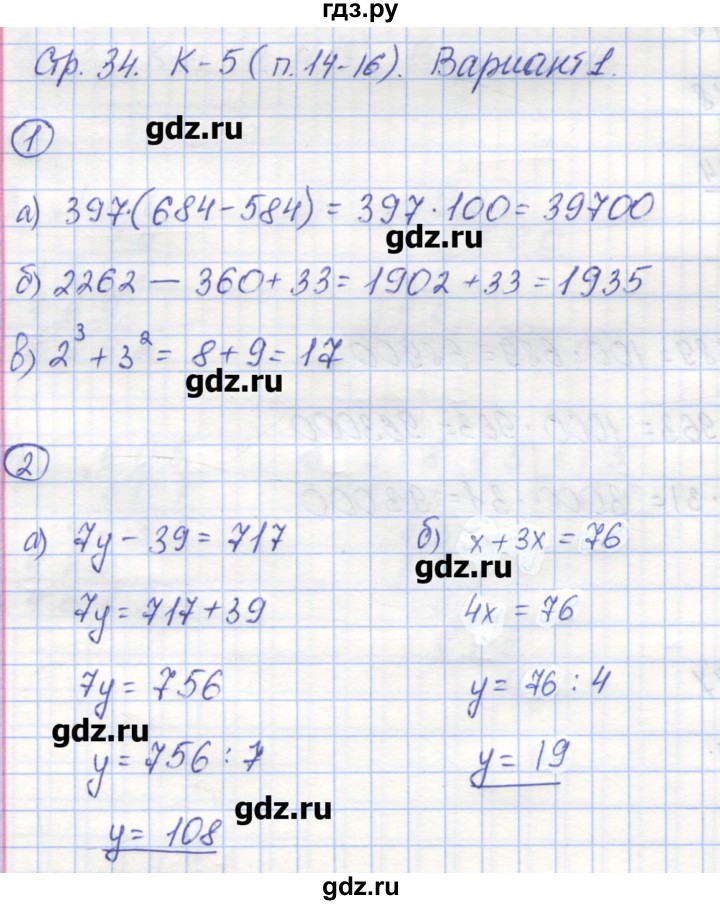 гдз.ру
Стр. 34. К-5 (п. 14-16). Вариант 1.
gdz.ru
1
а) 397·(684-584) = 397·100 = 39700
gdz.ru
б) 2262 - 360 + 33 = 1902 + 33 = 1935
в) 2³ + 3² = 8 + 9 = 17
gdz.ru
2
а) 7y - 39 = 717
б) x + 3x = 76
gdz.ru
7y = 717 + 39
4x = 76
7y = 756
y = 76 : 4
gdz.ru
y = 756 : 7
y = 19
gdz.ru
y = 108
gdz.ru